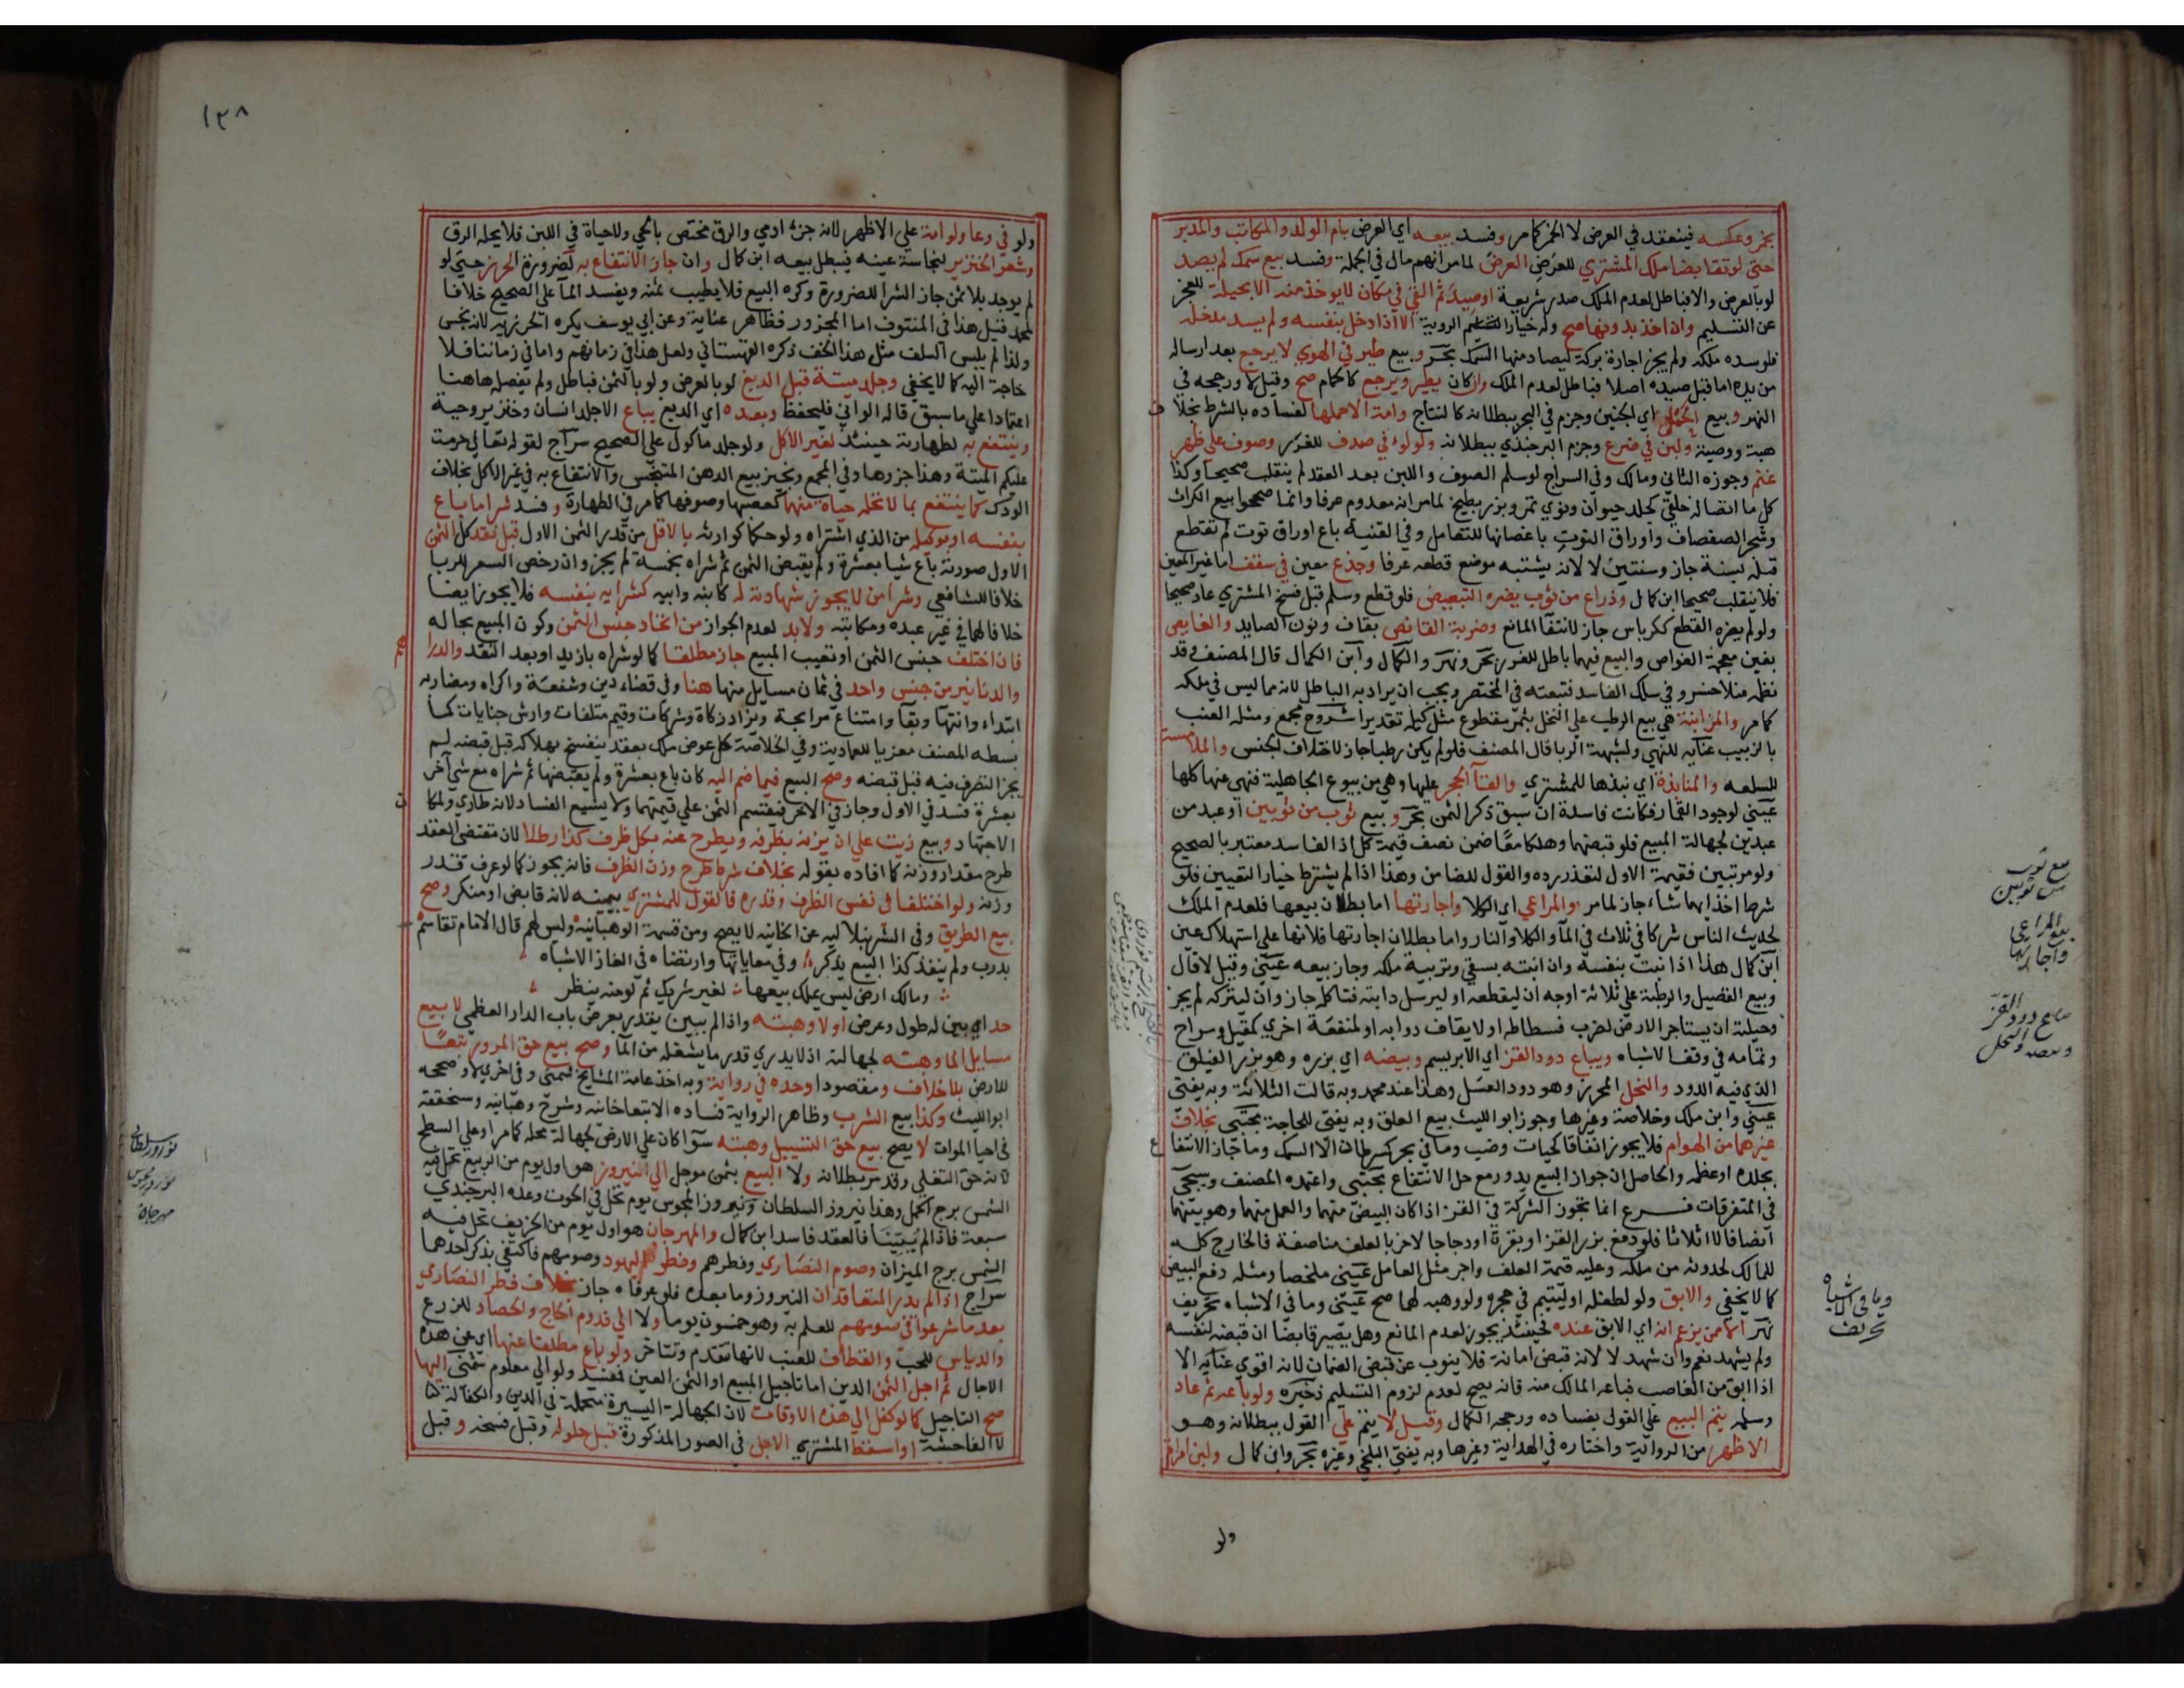 بخمر وعكسه فينعقد في العرض لا الخمر كما مر وفسد بيعه اي العرض بام الولد والمكاتب والمدبر
حتى لو تقابضا ملك المشتري للعرض العرض لما مر انهم مال في الجملة وفسد بيع سمك لم يصد
لو بالعرض والا فباطل لعدم الملك صدر شريعة او صيد ثم القي في مكان لا يوخذ منه الا بحيلة للعجز
عن التسليم وان اخذ بدونها صح وله خيار الروية الا اذا دخل بنفسه ولم يسد مدخله
فلو سده ملكه ولم يجز اجارة بركة ليصاد منها السمك بحر وبيع طير في الهوي لا يرجع بعد ارساله
من يده اما قبل صيده اصلا فباطل لعدم الملك وان كان يطير ويرجع كالحمام صح وقيل لا ورجحه في
النهر وبيع الحمل اي الجنين وجزم في البحر ببطلانه كالنتاج وامة الا حملها لفساده بالشرط بخلاف
هبة ووصية ولبن في ضرع وجزم البرجندي ببطلانه ولولوء في صدف للغرر وصوف على ظهر
غنم وجوزه الثاني ومالك وفي السراج لو سلم الصوف واللبن بعد العقد لم ينقلب صحيحا وكذا
كل ما اتصاله خلقي كجلد حيوان ونوي تمر وبزر بطيخ لما مر انه معدوم عرفا وانما صححوا بيع الكراث
وشجر الصفصاف واوراق التوت باغصانها للتعامل وفي القنية باع اوراق توت لم تقطع
قبله بسنة جاز وسنتين لا لانه يشتبه موضع قطعه عرفا وجذع معين في سقف اما غير المعين
فلا ينقلب صحيحا ابن كمال وذراع من ثوب يضره التبعيض فلو قطع وسلم قبل فسخ المشتري عاد صحيحا
ولو لم يضره القطع ككرباس جاز لانتفا المانع وضربة القانص بقاف ونون الصايد والغايص
بغين معجمة الغواص والبيع فيهما باطل للغرر بحر ونهر والكمال وابن الكمال قال المصنف وقد
نظمه منلا خسرو في سلك الفاسد فتبعته في المختصر ويجب ان يراد به الباطل لانه مما ليس في ملكه
كما مر والمزابنة هي بيع الرطب على النخل بتمر مقطوع مثل كيله تقديرا شروح مجمع ومثله العنب
بالزبيب عناية للنهي ولشبهة الربا قال المصنف فلو لم يكن رطبا جاز لاختلاف الجنس والملامسة
للسلعه والمنابذة اي نبذها للمشتري والقآ الحجر عليها وهي من بيوع الجاهلية فنهي عنها كلها
عيني لوجود القمار فكانت فاسدة ان سبق ذكر الثمن بحر وبيع ثوب من ثوبين او عبد من
عبدين لجهالة المبيع فلو قبضهما وهلكا معا ضمن نصف قيمة كل اذ الفاسد معتبر بالصحيح
ولو مرتبين فقيمة الاول لتعذر رده والقول للضامن وهذا اذا لم يشترط خيار التعيين فلو
شرط اخذ ايهما شاء جاز لما مر والمراعي اي الكلا واجارتها اما بطلان بيعها فلعدم الملك
لحديث الناس شركا في ثلاث في المآ والكلا والنار واما بطلان اجارتها فلانها على استهلاك عين
ابن كمال هذا اذا نبت بنفسه وان انبته بسقي وتربية ملكه وجاز بيعه عيني وقيل لا قال
وبيع القصيل والرطبة على ثلاثة اوجه ان ليقطعه او ليرسل دابته فتاكله جاز وان ليتركه لم يجز
وحيلته ان يستاجر الارض لضرب فسطاطه او لايقاف دوابه او لمنفعة اخري كمقيل ومراح
وتمامه في وقف الاشباه ويباع دود القز اي الابريسم وبيضه اي بزره وهو بزر الفيلق
الذي فيه الدود والنحل المحرز وهو دود العسل وهذا عند محمد وبه قالت الثلاثة وبه يفتى
عيني وابن ملك وخلاصة وغيرها وجوز ابو الليث بيع العلق وبه يفتى للحاجة مجتبى بخلاف
غيرهما من الهوام فلا يجوز اتفاقا كحيات وضب وما في بحر كسرطان الا السمك وما جاز الانتفاع
بجلده او عظمه والحاصل ان جواز البيع يدور مع حل الانتفاع مجتبى واعتمده المصنف وسيجي
في المتفرقات فرع انما تجوز الشركة في القز اذا كان البيض منهما والعمل منهما وهو بينهما
انصافا لا اثلاثا فلو دفع بزر القز او بقرة او دجاجا لاخر بالعلف مناصفة فالخارج كله
للمالك لحدوثه من ملكه وعليه قيمة العلف واجر مثل العامل عيني ملخصا ومثله دفع البيض
كما لا يخفي والابق ولو لطفله او ليتيم في حجره ولو وهبه لهما صح عيني وما في الاشباه تحريف
نهر الا ممن يزعم انه اي الابق عنده فحينئذ يجوز لعدم المانع وهل يصير قابضا ان قبضه لنفسه
ولم يشهد نعم وان شهد لا لانه قبض امانة فلا ينوب عن قبض الضمان لانه اقوي عناية الا
اذا ابق من الغاصب فباعه المالك منه فانه يصح لعدم لزوم التسليم ذخيره ولو باعه ثم عاد
وسلمه يتم البيع على القول بفساده ورجحه الكمال وقيل لا يتم علي القول ببطلانه وهو
الاظهر من الرواية واختاره في الهداية وغيرها وبه يفتي البلخي وغيره بحر وابن كمال ولبن امراة
ولو
بيع ثوب
من ثوبين
بيع المراعي
واجارتها
وما في الاشباه
تحريف
١٣٨
ولو في وعا ولو امة علي الاظهر لانه جزء ادمي والرق مختص بالحي ولا حياة في اللبن فلا يحله الرق
وشعر الخنزير لنجاسة عينه فيبطل بيعه ابن كمال وان جاز الانتفاع به لضرورة الخرز حتى لو
لم يوجد بلا ثمن جاز الشرا للضرورة وكره البيع فلا يطيب ثمنه ويفسد المآ علي الصحيح خلافا
لمحمد قيل هذا في المنتوف اما المجزوز فطاهر عناية وعن ابي يوسف يكره الخرز به لانه نجس
ولذا لم يلبس السلف مثل هذا الخف ذكره القهستاني ولعل هذا في زمانهم واما في زماننا فلا
حاجة اليه كما لا يخفي وجلد ميتة قبل الدبغ لو بالعرض ولو بالثمن فباطل ولم يفصله هاهنا
اعتمادا علي ما سبق قاله الواني فليحفظ وبعده اي الدبغ يباع الا جلد انسان وخنزير وحية
وينتفع به لطهارته حينئذ لغير الاكل ولو جلد ماكول علي الصحيح سراج لقوله تعالي حرمت
عليكم الميتة وهذا جزوها وفي المجمع ونجيز بيع الدهن المتنجس والانتفاع به في غير الاكل بخلاف
الودك كما ينتفع بما لا تحله حياة منها كعصبها وصوفها كما مر في الطهارة وفسد شرا ما باع
بنفسه او بوكيله من الذي اشتراه ولو حكما كوارثه بالاقل من قدر الثمن الاول قبل نقد كل الثمن
الاول صورته باع شيا بعشرة ولم يقبض الثمن ثم شراه بخمسة لم يجز وان رخص السعر للربا
خلافا للشافعي وشرا من لا يجوز شهادته له كابنه وابيه كشرايه بنفسه فلا يجوز ايضا
خلافا لهما في غير عبده ومكاتبه ولا بد لعدم الجواز من اتحاد جنس الثمن وكون المبيع بحاله
فان اختلف جنس الثمن او تعيب المبيع جاز مطلقا كما لو شراه بازيد او بعد النقد والدراهم
والدنانير من جنس واحد في ثمان مسايل منها هنا وفي قضاء دين وشفعة واكراه ومضاربه
ابتداء وانتهآ وبقآ وامتناع مرابحة ويزاد زكاة وشركات وقيم متلفات وارش جنايات كما
بسطه المصنف معزيا للعمادية وفي الخلاصة كل عوض ملك بعقد ينفسخ بهلاكه قبل قبضه لم
يجز التصرف فيه قبل قبضه وصح البيع فيما ضم اليه كان باع بعشرة ولم يقبضها ثم شراه مع شي آخر
بعشرة فسد في الاول وجاز في الاخر فيقسم الثمن علي قيمتهما ولا يشيع الفساد لانه طاري ولمكان
الاجتهاد وبيع زيت علي ان يزنه بظرفه ويطرح عنه بكل ظرف كذا رطلا لان مقتضي العقد
طرح مقدار وزنه كما افاده بقوله بخلاف شرط طرح وزن الظرف فانه يجوز كما لو عرف قدر
وزنه ولو اختلفا في نفس الظرف وقدره فالقول للمشتري بيمينه لانه قابض او منكر وصح
بيع الطريق وفي الشرنبلاليه عن الخانيه لا يصح ومن قسمة الوهبانيه وليس لهم قال الامام تقاسم
بدرب ولم ينفذ كذا البيع يذكر وفي معاياتها وارتضاه في الغاز الاشباه
ومالك ارض ليس يملك بيعها لغير شريك ثم لو منه ينظر
حد اي بين له طول وعرض اولا وهبته واذا لم يبين يقدر بعرض باب الدار العظمي لا بيع
مسايل الما وهبته لجهالته اذ لا يدري قدر ما يشغله من المآ وصح بيع حق المرور تبعا
للارض بلا خلاف ومقصودا وحده في رواية وبه اخذ عامة المشايخ شمني وفي اخري لا وصححه
ابو الليث وكذا بيع الشرب وظاهر الرواية فساده الا تبعا خانيه وشرح وهبانيه وسنحققه
في احيا الموات لا يصح بيع حق التسييل وهبته سوآ كان علي الارض لجهالة محله كما مر او علي السطح
لانه حق التعلي وقد مر بطلانه ولا البيع بثمن موجل الي النيروز هو اول يوم من الربيع تحل فيه
الشمس برج الحمل وهذا نيروز السلطان ونيروز المجوس يوم تحل في الحوت وعده البرجندي
سبعة فاذا لم يبينا فالعقد فاسد ابن كمال والمهرجان هو اول يوم من الخريف تحل فيه
الشمس برج الميزان وصوم النصاري وفطرهم وفطر اليهود وصومهم فاكتفي بذكر احدهما
سراج اذا لم يدر المتعاقدان النيروز وما بعده فلو عرفاه جاز بخلاف فطر النصاري
بعد ما شرعوا في صومهم للعلم به وهو خمسون يوما ولا الي قدوم الحاج والحصاد للزرع
والدياس للحب والقطاف للعنب لانها تتقدم وتتاخر ولو باع مطلقا عنها اي عن هذه
الاجال ثم اجل الثمن الدين اما تاجيل المبيع او الثمن العين فمفسد ولو الي معلوم شمني اليها
صح التاجيل كما لو كفل الي هذه الاوقات لان الجهالة اليسيرة متحملة في الدين والكفالة لا
لا الفاحشة او اسقط المشتري الاجل في الصور المذكورة قبل حلوله وقبل فسخه وقبل
نوروز سلطاني
نوروز مجوس
مهرجان